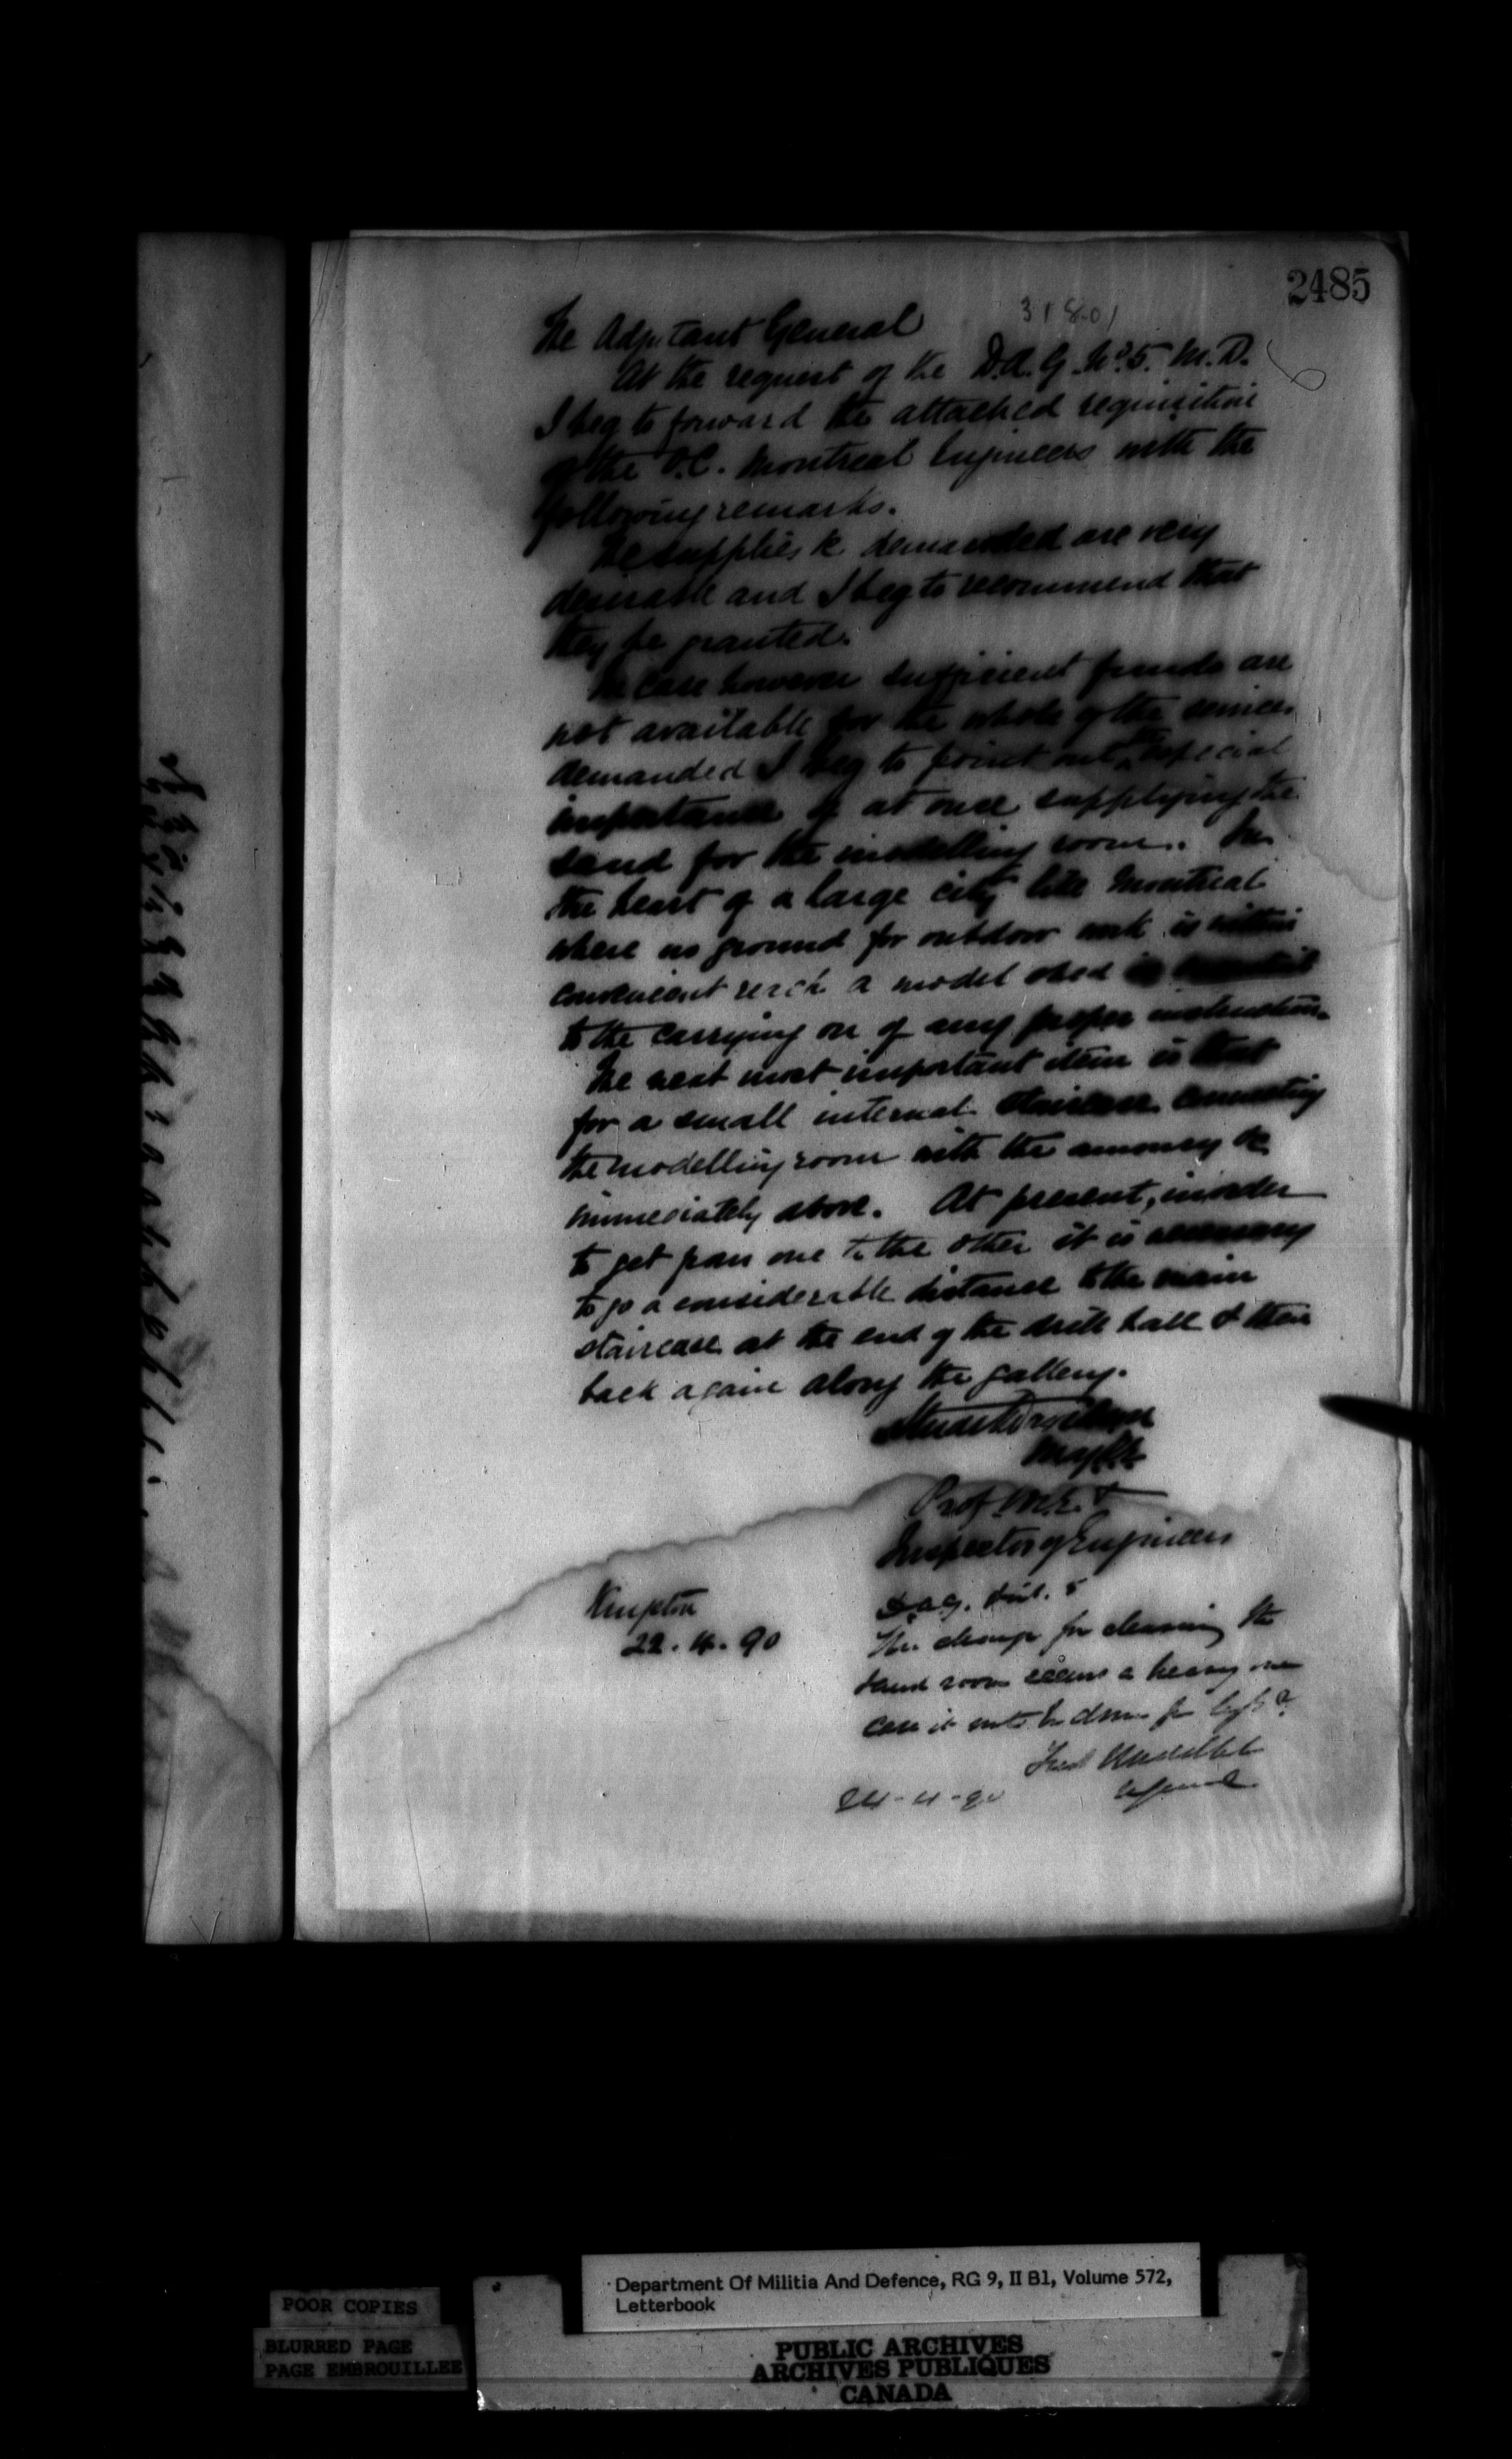 2485
31801
The Adjutant General
At the request of the D.A.G. No. 5. M.D.
I beg to forward the attached requisition
of the O.C. Montreal Engineers with the
following remarks.
The supplies &c demanded are very
desirable and I beg to recommend that
they be granted.
In case however sufficient funds are
not available for the whole of the services
demanded I beg to point out the special
importance of at once supplying the
sand for the modelling room. In
the heart of a large city like Montreal
where no ground for outdoor work is within
convenient reach a model shed is essential
to the carrying on of any proper instruction.
The next most important item is that
for a small internal staircase connecting
the modelling room with the armoury &c
immediately above. At present, in order
to get from one to the other it is necessary
to go a considerable distance to the main
staircase at the end of the drill hall & then
back again along the gallery.
Major
Prof. M.E. &
Inspector of Engineers
Kingston
22.4.90
D.A.G. Dist. 5
The charge for cleaning the
sand room seems a heavy one
can it not be done for less?
Fred Middleton
M General
24-4-90
Department Of Militia And Defence, RG 9, II B1, Volume 572,
Letterbook
POOR COPIES
BLURRED PAGE
PAGE EMBROUILLEE
PUBLIC ARCHIVES
ARCHIVES PUBLIQUES
CANADA